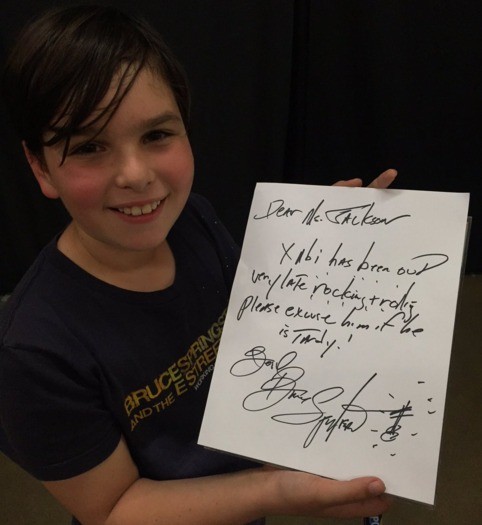 Dear Ms. Jackson
Xabi has been out
very late rocking & rolling
please excuse him if he
is Tardy!
Bruce Springsteen
BRUCE SPRINGS
AND THE E STREE